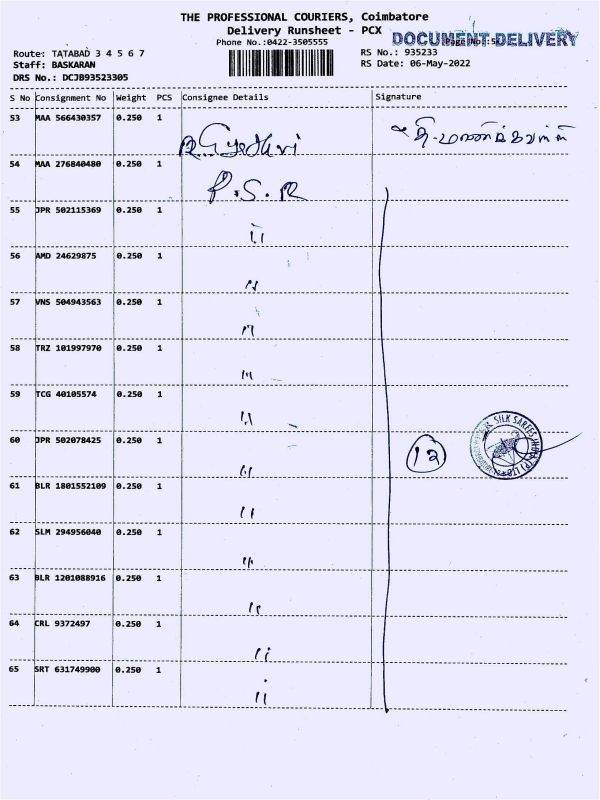 THE PROFESSIONAL COURIERS, Coimbatore
Delivery Runsheet - PCX
Phone No.:0422-3505555
DOCUMENT DELIVERY
Route: TATABAD 3 4 5 6 7
RS No.: 935233
Staff: BASKARAN
RS Date: 06-May-2022
DRS No.: DCJB93523305
S No Consignment No Weight PCS Consignee Details Signature
53 MAA 566430357 0.250 1
54 MAA 276840480 0.250 1
P.S.R
55 JPR 502115369 0.250 1
"
56 AMD 24629875 0.250 1
"
57 VNS 504943563 0.250 1
"
58 TRZ 101997970 0.250 1
"
59 TCG 40105574 0.250 1
"
60 JPR 502078425 0.250 1
"
12
SILK SAREES INDIA (P) LTD
61 BLR 1801552109 0.250 1
"
62 SLM 294956040 0.250 1
"
63 BLR 1201088916 0.250 1
"
64 CRL 9372497 0.250 1
"
65 SRT 631749900 0.250 1
"